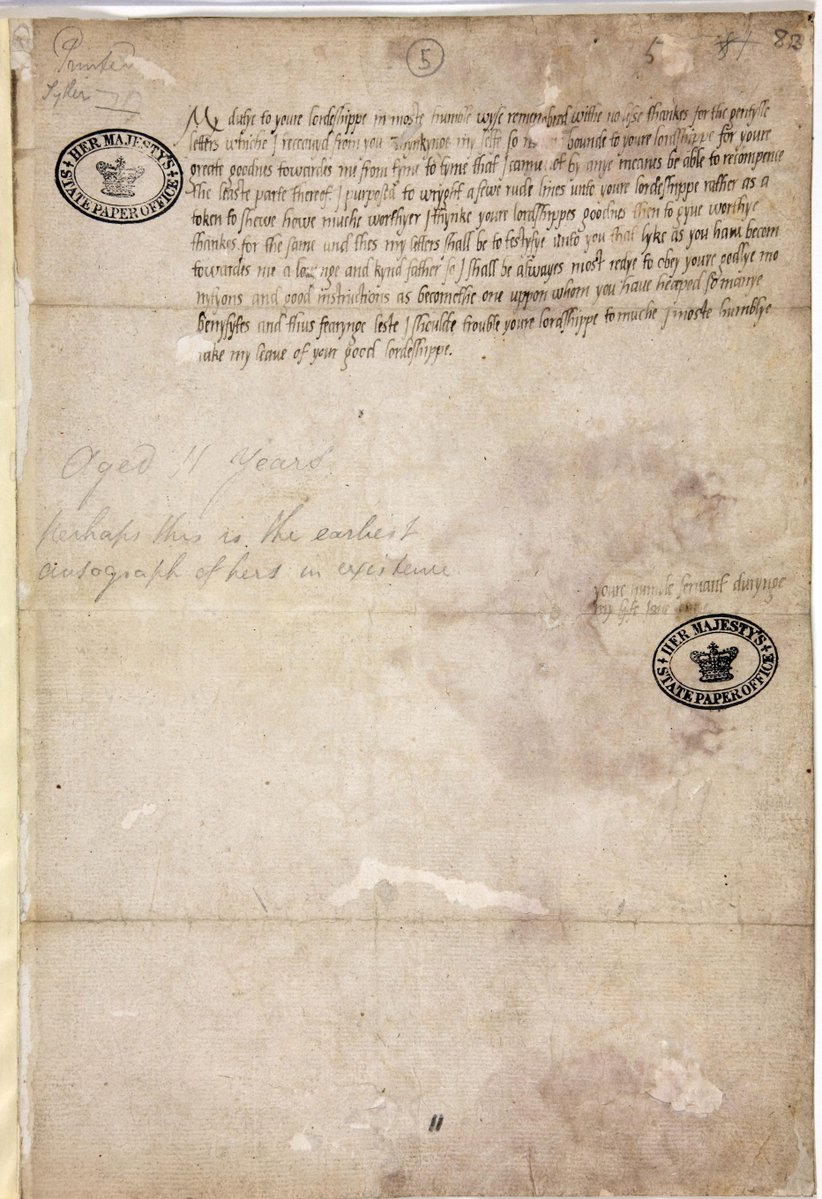 Printed
Tytler
5
5
84
83
HER MAJESTY'S
STATE PAPER OFFICE
My dutye to youre lordeshippe in moste humble wyse remembred withe no lesse thankes for the gentylle
letters whiche I receavyd from you Thynkynge my selfe so bounde to youre lordshippe for youre
greate goodnes towardes me from tyme to tyme that I cannot by anye meanes be able to recompence
the leaste parte thereof, I purposed to wryght a fewe rude lines unto youre lordeshippe rather as a
token to shewe howe muche worthyer I thynke youre lordshippes goodnes then to gyve worthye
thankes for the same and thes my letters shall be to testyfye unto you that lyke as you have becom
towardes me a lovynge and kynd father so I shall be alwayes most redye to obey youre godlye mo
nytyons and good instructions as becomethe one uppon whom you have heaped so manye
benyfytes and thus fearynge leste I shoulde trouble youre lordshippe to muche I moste humblye
take my leave of your good lordeshippe.
Aged 11 Years
perhaps this is the earliest
autograph of hers in existence
youre humble servant durynge
my life Jane
HER MAJESTY'S
STATE PAPER OFFICE
11